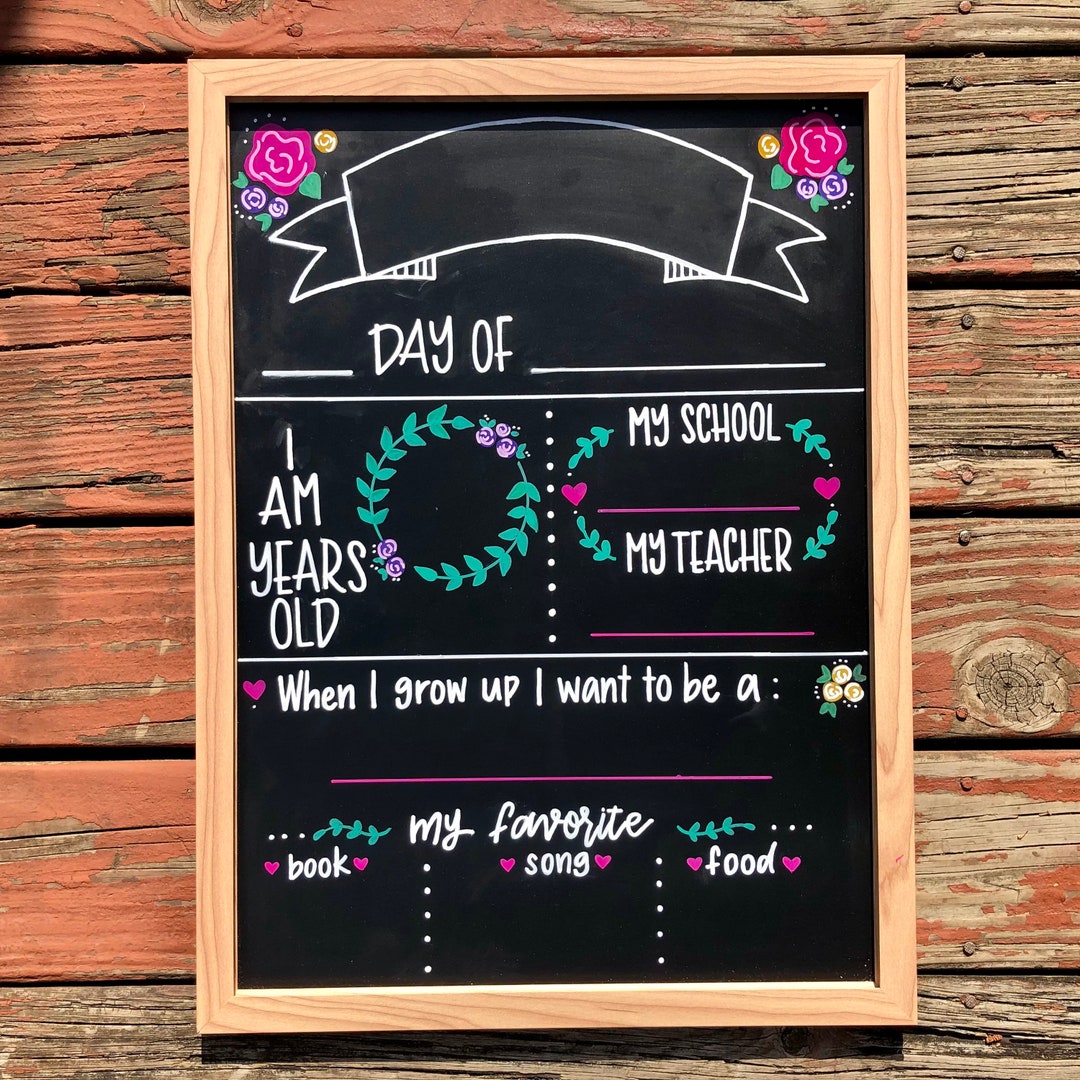 DAY OF
I
AM
YEARS
OLD
MY SCHOOL
MY TEACHER
When I grow up I want to be a:
my favorite
book
song
food